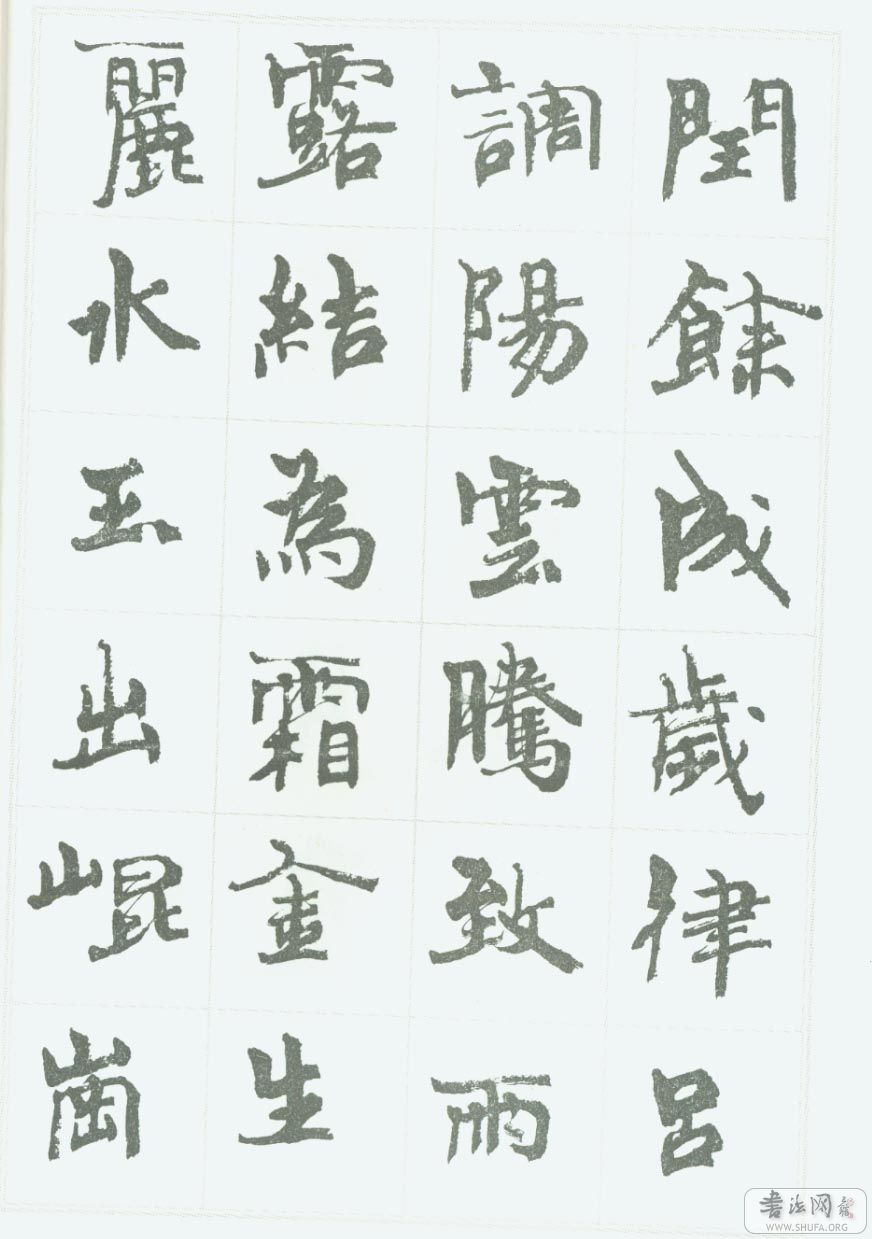 閏餘成歲律呂
調陽雲騰致雨
露結為霜金生
麗水玉出崐崗
书法网
WWW.SHUFA.ORG